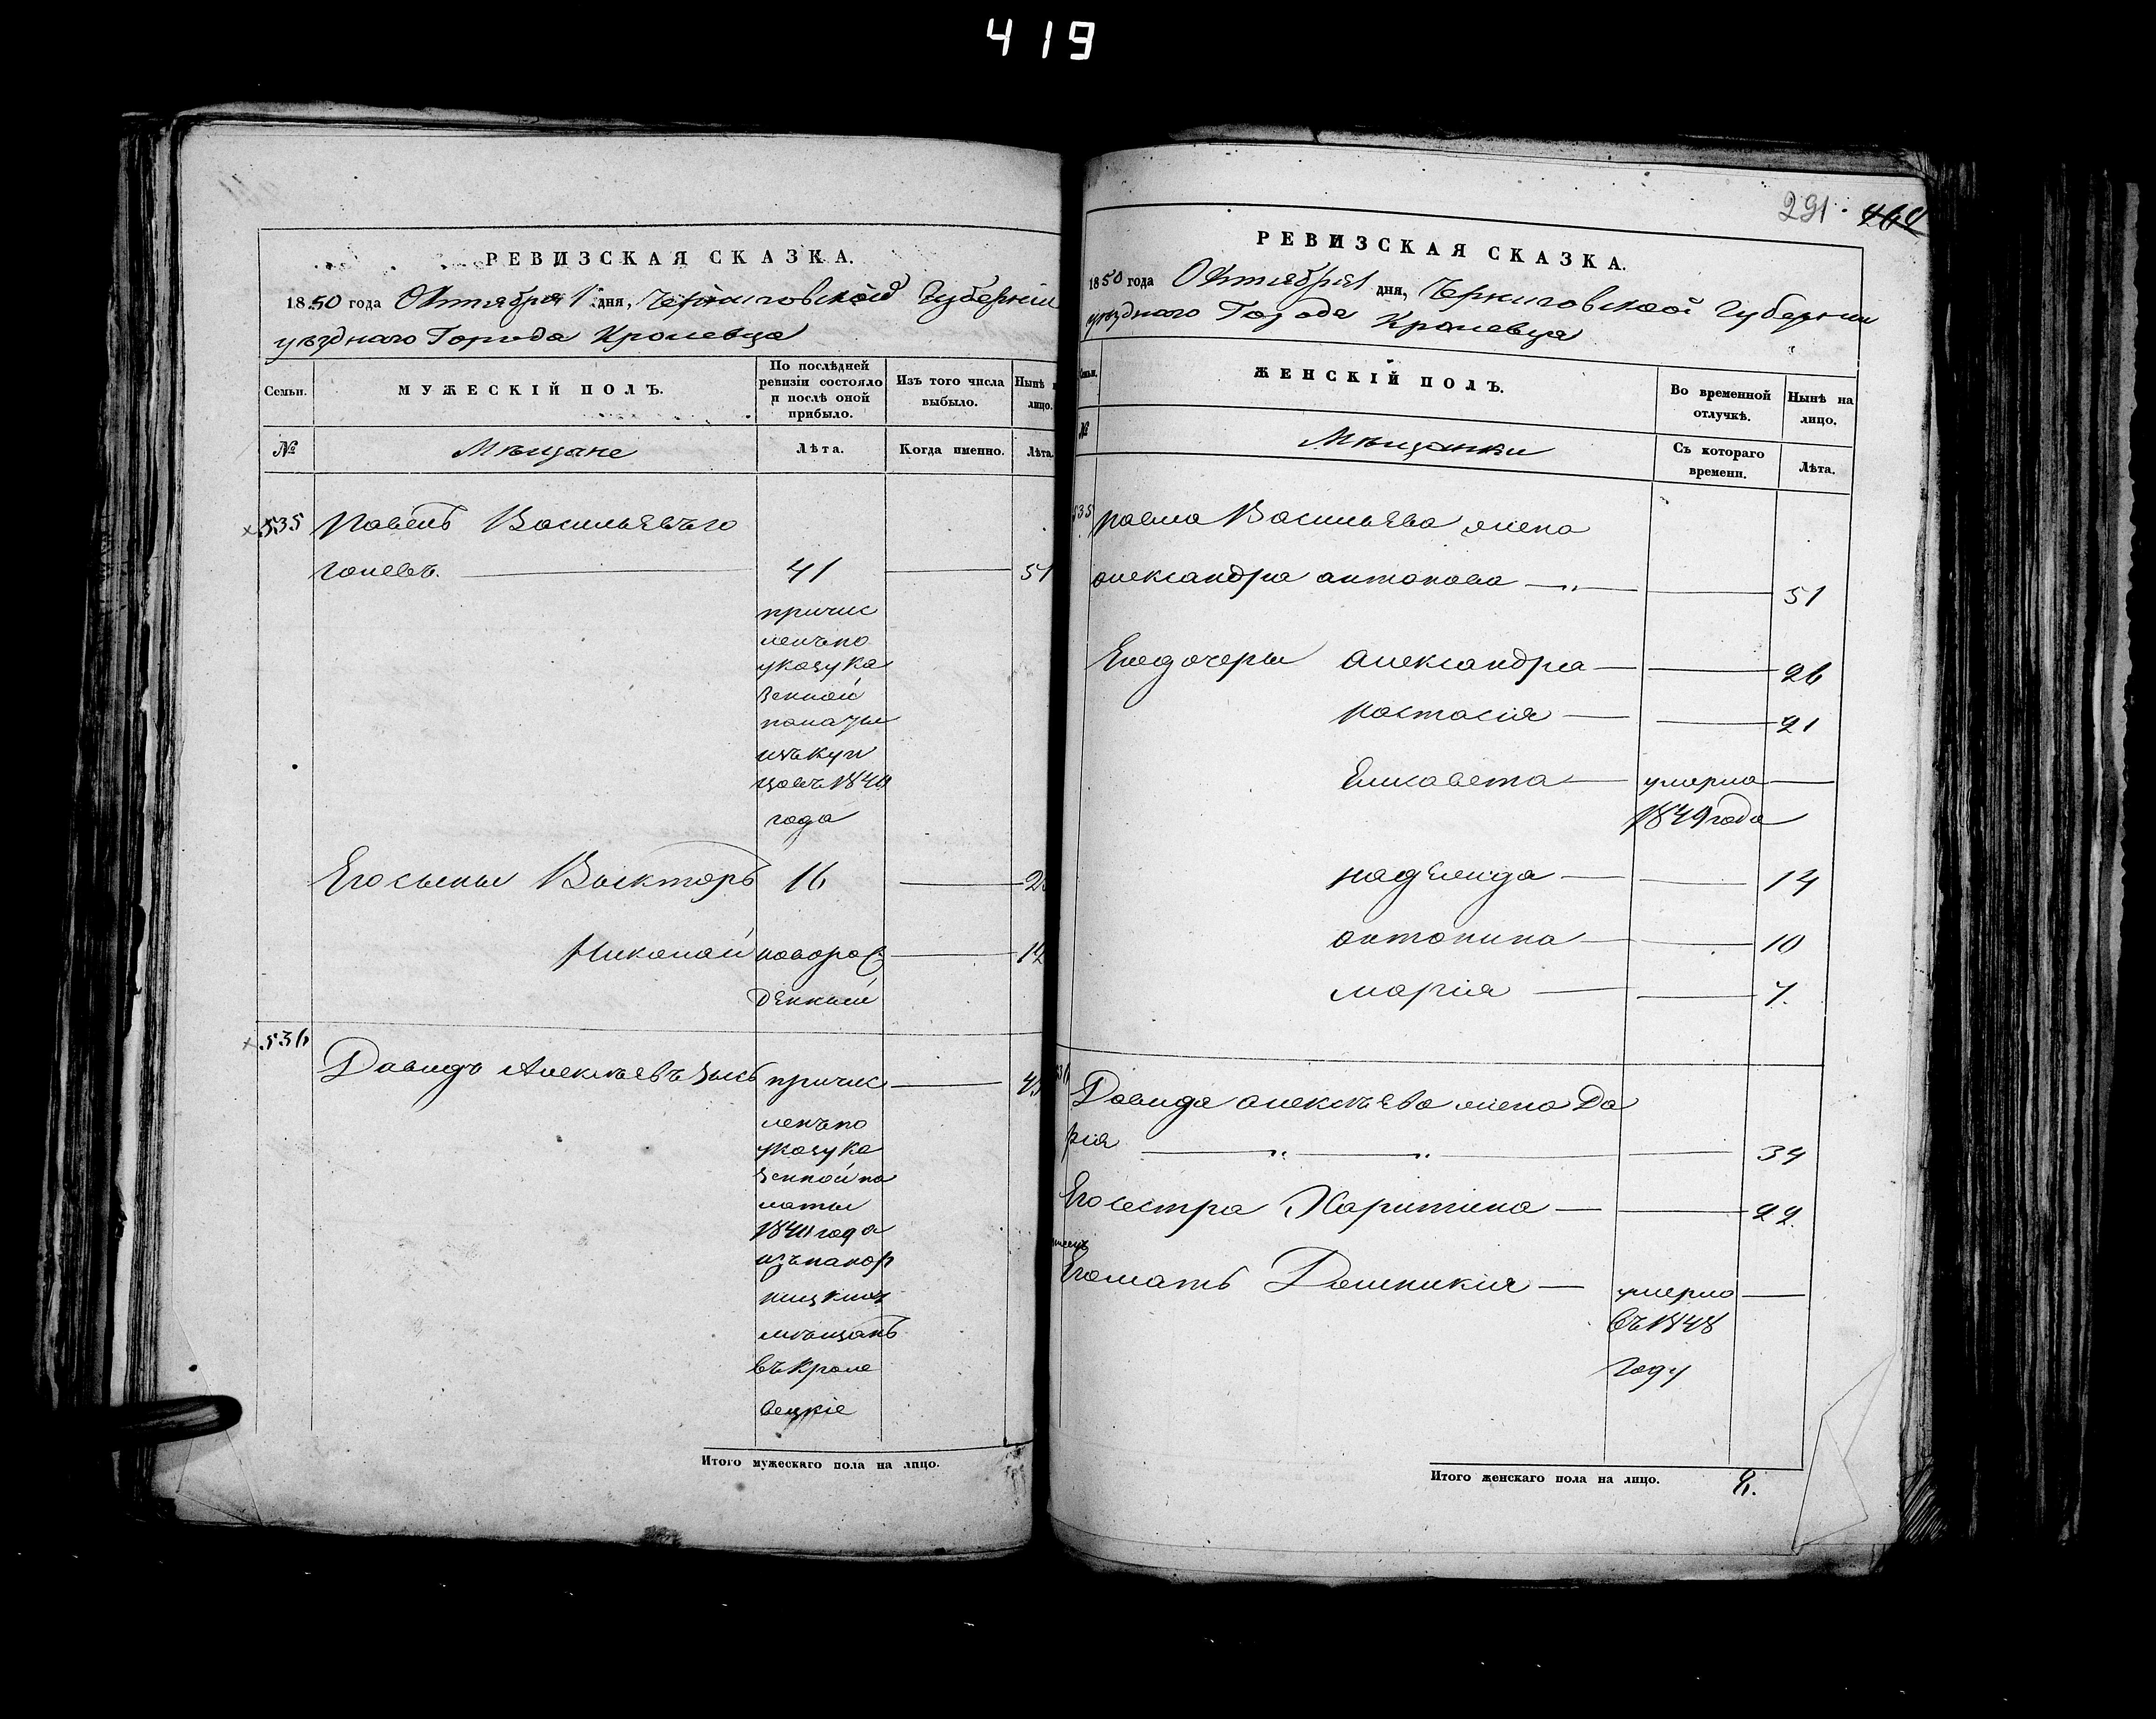 419
РЕВИЗСКАЯ СКАЗКА.
1850 года Октября 1 дня, Черниговской Губерніи
уѣзднаго Города Кролевца
Семьи.
МУЖЕСКІЙ ПОЛЪ.
По послѣдней
ревизіи состояло
и послѣ оной
прибыло.
Изъ того числа
выбыло.
Нынѣ
лицо.
№
Мѣщане
Лѣта.
Когда именно.
Лѣта.
535 Павелъ Васильевъ
41 51
причис
ленъ по
указу ка
зенной
палаты
изъ куп
цовъ 1840
года
Его сыны Викторъ 16
Николай новорож
денный
536
Давидъ Алексѣевъ причис
ленъ по
указу ка
зенной па
латы
1840 года
мѣщанъ
въ Кроле
вецкіе
Итого мужескаго пола на лицо.
291. 464
РЕВИЗСКАЯ СКАЗКА.
1850 года Октября 1 дня, Черниговской Губерніи
уѣзднаго Города Кролевца
ЖЕНСКІЙ ПОЛЪ.
Во временной
отлучкѣ.
Нынѣ на
лицо.
№
Мѣщанки
Съ котораго
времени.
Лѣта.
535 Павла Васильева жена
александра антонова 51
Его дочери александра 26
настасія 21
Елисавета умерла
1849 года
надежда 14
антонина 10
марія 7.
536
Давида алексѣева жена Да
рія 34
Его сестра Харитина 22.
Его мать Домникія умерла
въ 1848
году
Итого женскаго пола на лицо. 8.